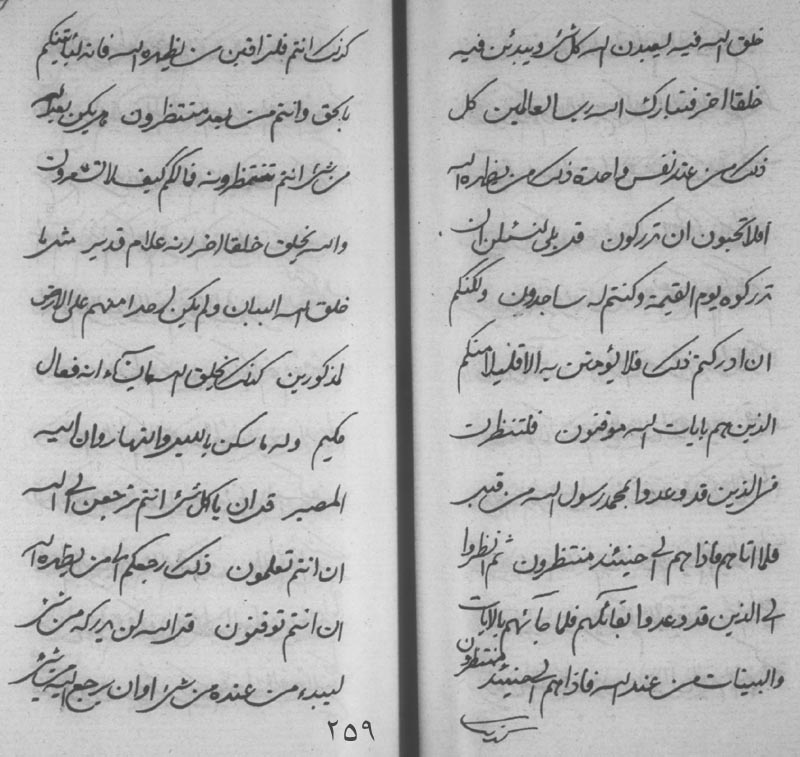 خلق الله فيه ليعبدن الله كل شئ ويبدئن فيه
خلقا اخر فتبارك الله رب العالمين كل
ذلك من عند نفس واحدة ذلك من يظهره الله
افلا تحبون ان تدركون قل بلى لنسئلن ان
تدركوه يوم القيمة وكنتم له ساجدون ولكنكم
ان ادركتم ذلك فلا يؤمنن به الا قليلا منكم
الذين هم بايات الله موقنون فلتنظرن
فى الذين قد وعدوا بمحمد رسول الله من قبل
فلما اتاهم فاذا هم الى حينئذ منتظرون ثم انظروا
الى الذين قد وعدوا بقائمكم فلما جائهم بالايات
والبينات من عند الله فاذا هم الى حينئذ منتظرون
كذلك
كذلك انتم فلتراقبن من يظهره الله فانه ليأتينكم
بالحق وانتم من بعد منتظرون هو يكن بعد الله
من شئ انتم تنتظرونه فمالكم كيف لا تشعرون
والله يخلق خلقا اخر انه علام قدير مثل ما
خلق الله البيان ولم يكن احدا منهم على الارض
لمذكورين كذلك يخلق الله ما يشاء انه فعال
حكيم وله ما سكن بالليل والنهار وان اليه
المصير قل ان يا كل شئ انتم ترجعن الى الله
ان انتم تعلمون ذلك رجعكم الى من يظهره الله
ان انتم توقنون قل الله لن يدركه من شئ
ليبدء من عنده من شئ او ان يرجع اليه من شئ
٢٥٩